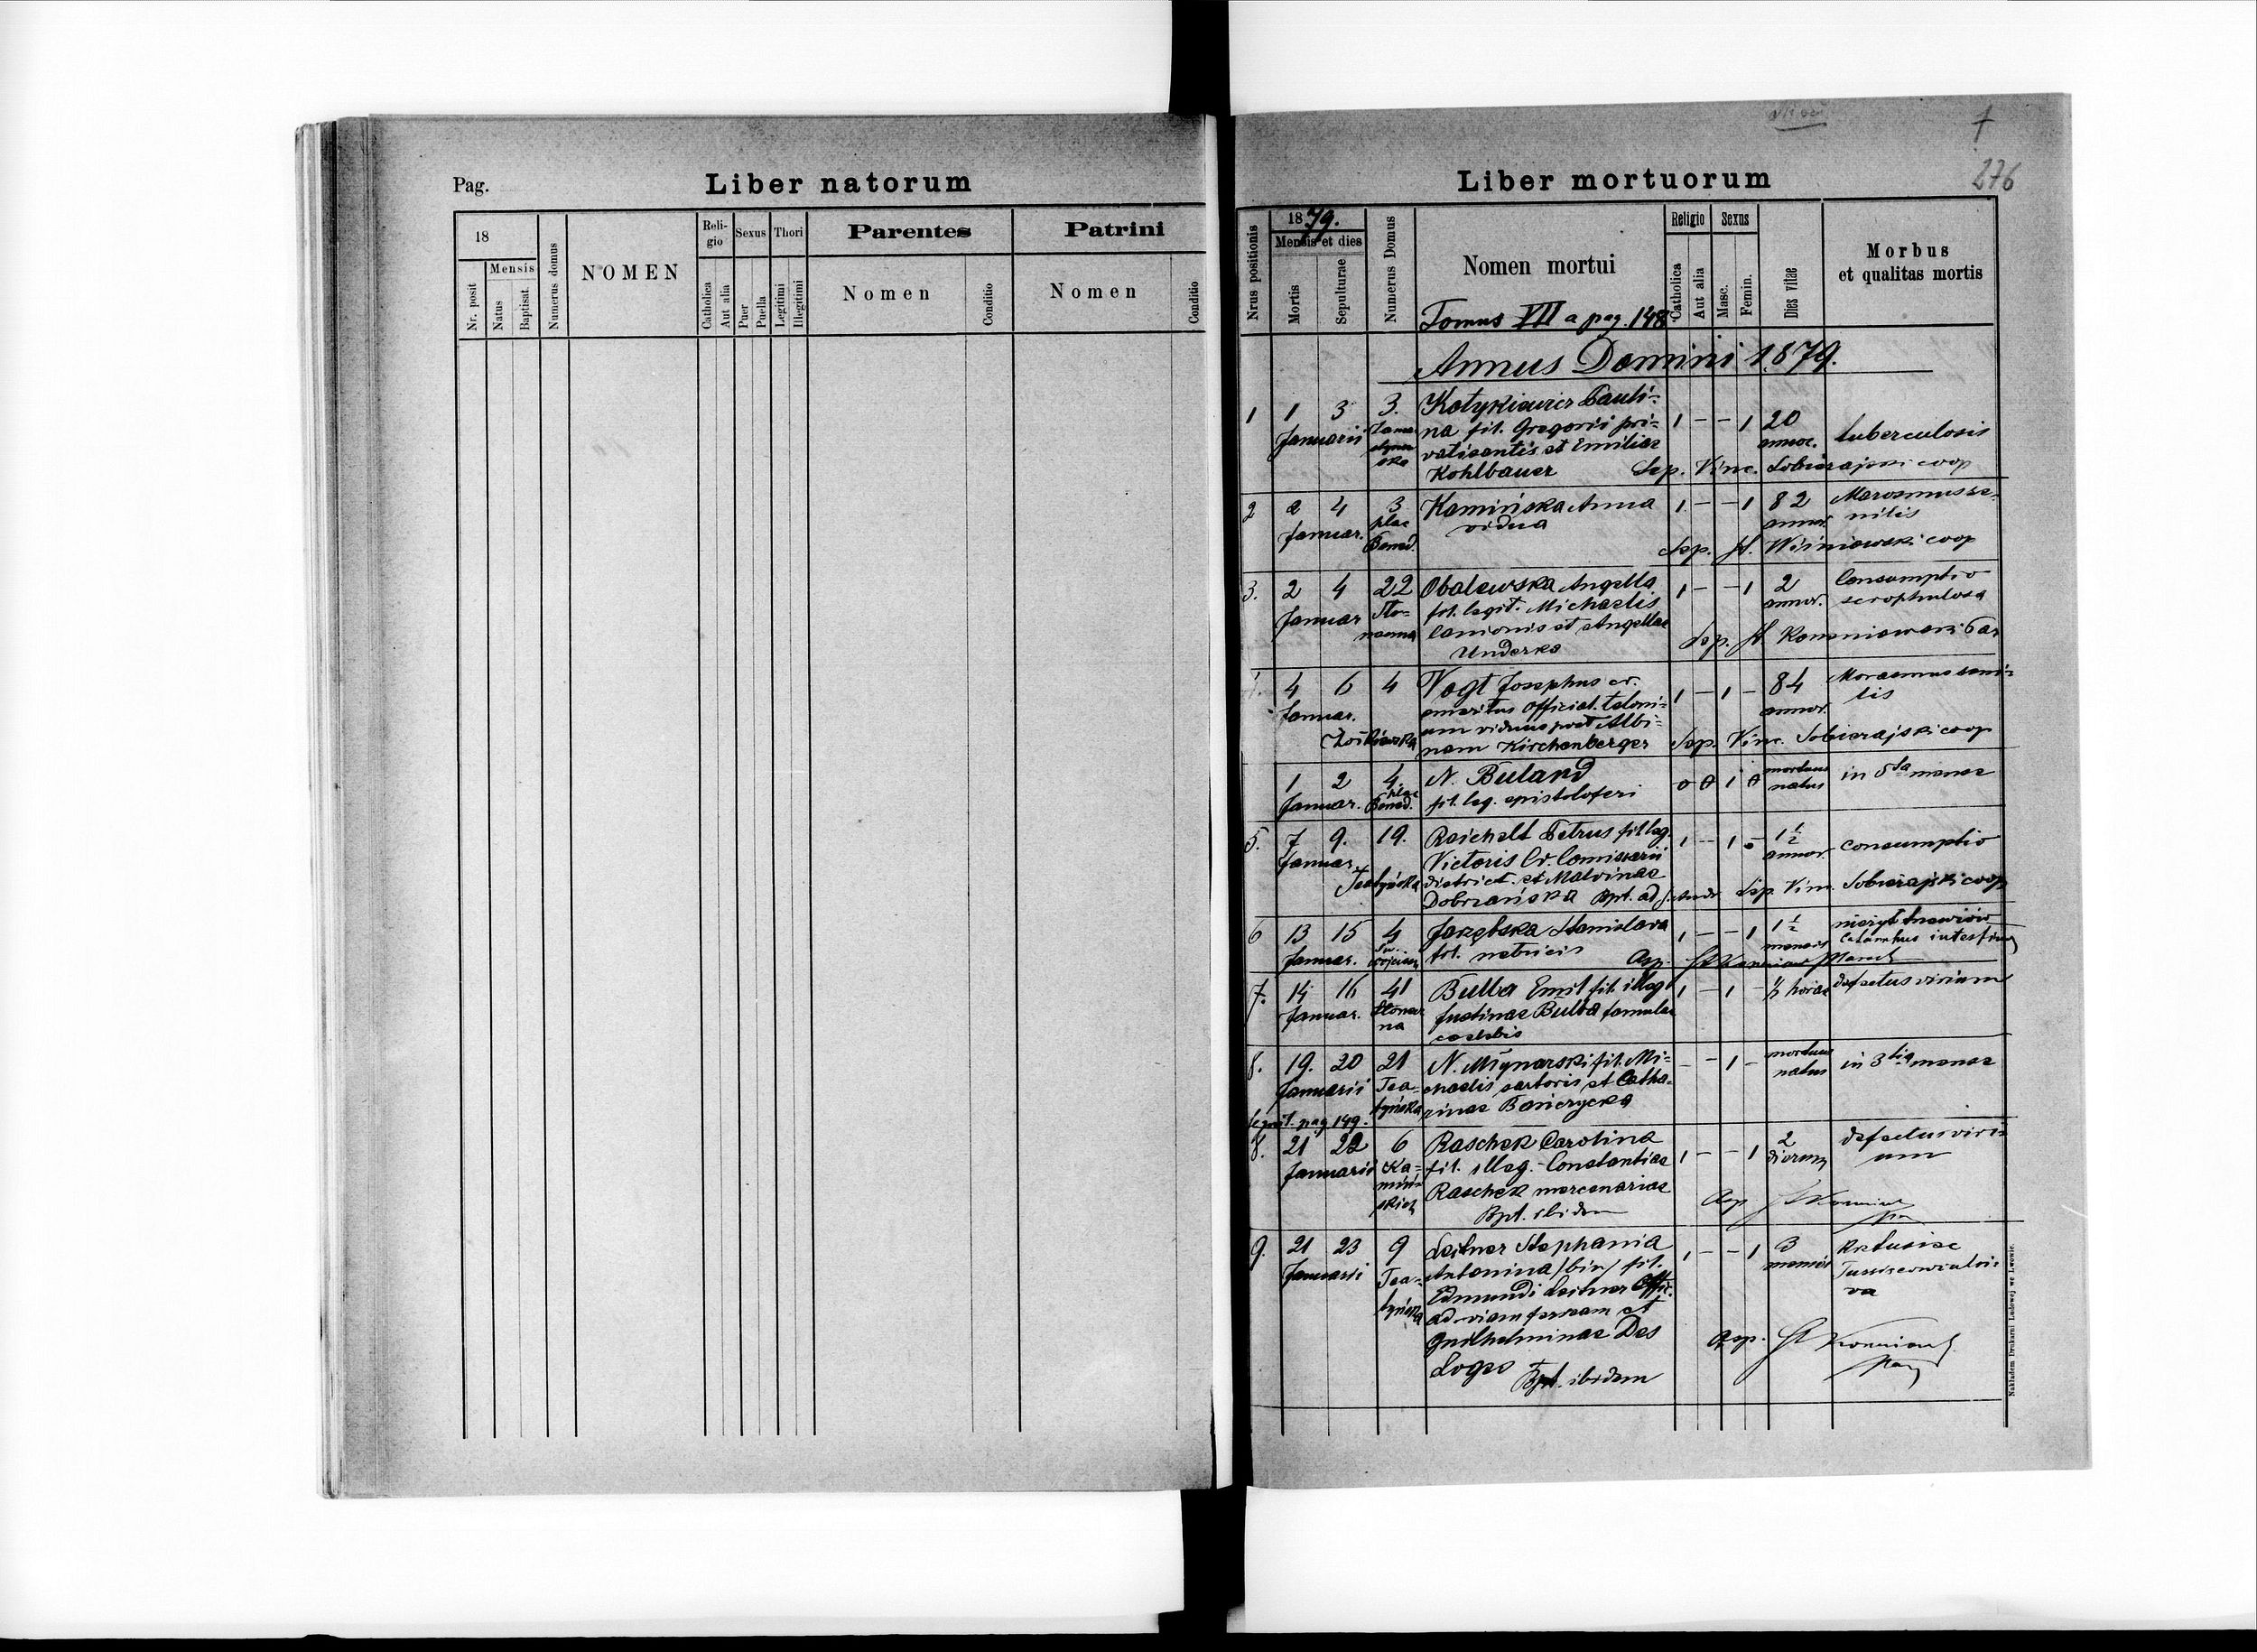 Pag.
Liber natorum
18
Mensis
Nr. posit
Natus
Baptisat.
Numerus domus
NOMEN
Reli-
gio
Catholica
Aut alia
Sexus
Puer
Puella
Thori
Legitimi
Illegitimi
Parentes
Nomen
Conditio
Patrini
Nomen
Conditio
276
Liber mortuorum
Nrus positionis
1879.
Mensis et dies
Mortis
Sepulturae
Numerus Domus
Nomen mortui
Tomus VII a pag. 148
Religio
Catholica
Aut alia
Sexus
Masc.
Femin.
Dies vitae
Morbus
et qualitas mortis
Annus Domini 1879.
1 1 3 3. Kotykiewicz Pauli=
Januarii na fil. Gregorii pri= 1 - - 1 20
vatisantis et Emiliae annor. tuberculosis
Kohlbauer Sep. Vinc. Sobierajski coop
2 2 4 3 Kamińska Anna 1 - - 1 82 Marasmus se-
Januar. plac Bened. vidua annor. nilis
Sep. St. Wiśniowski coop
3. 2 4 22 Obalewska Angella 1 - - 1 2 Consumptio
Januar fil. legit. Michaelis annor. scrophulosa
lanionis et Angellae
Underka Sep. St
4. 4 6 4 Vogt Josephus 1 - 1 - 84 Marasmus seni=
Januar. emeritus official. teloni= annor. lis
um viduus post Albi=
nam Kirchenberger Sep. Vinc. Sobierajski coop
1 2 4. N. Buland 0 0 1 0 mortuus in 5ta mense
Januar. plac Bened. fil. leg. epistoloferi natus
5. 7 9. 19. Reichelt Petrus fil leg. 1 - 1 1½ consumptio
Januar. Victoris Comissarii annor.
Teatyńska district. et Malvinae
Dobrzańska Bpt. ad Sep. Vinc. Sobierajski coop
6 13 15 4 Jarzębska Stanislava 1 - - 1 1½
Januar. fil. nutricis mensis Catarrhus
7. 14 16 41 Bulba Emil fil. illeg 1 - 1 - ½ horae defectus virium
Januar. Justinae Bulba famulae
caelebis
8. 19. 20 21 N. Młynarski fil. Mi= - - 1 - mortuus in 3tio mense
Januarii Tea- chaelis sartoris et Catha- natus
tyńska rinae
pag. 149.
8. 21 22 6 Raschek Carolina 1 - - 1 2 defectus viri=
Januarii Ka= fil. illeg. Constantiae diorum um
miń= Raschek mercenariae
skich Bpt. ibidem
9. 21 23 9 Leitner Stephania 1 - - 1 3
Januarii Tea= Antonina /bin/ fil. mensis
tyńska Edmundi Leitner Offic.
ad viam ferream et
Guilhelminae Des
Loges
Bpt. ibidem
Nakładem Drukarni Ludowej we Lwowie.